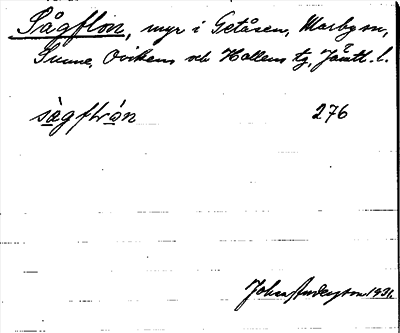 Sågflon, myr i Getåsen, Marby sn,
Sunne, Ovikens och Hallens tg, Jämtl. l.
sågflrån 276
Johan Anderson 1931.